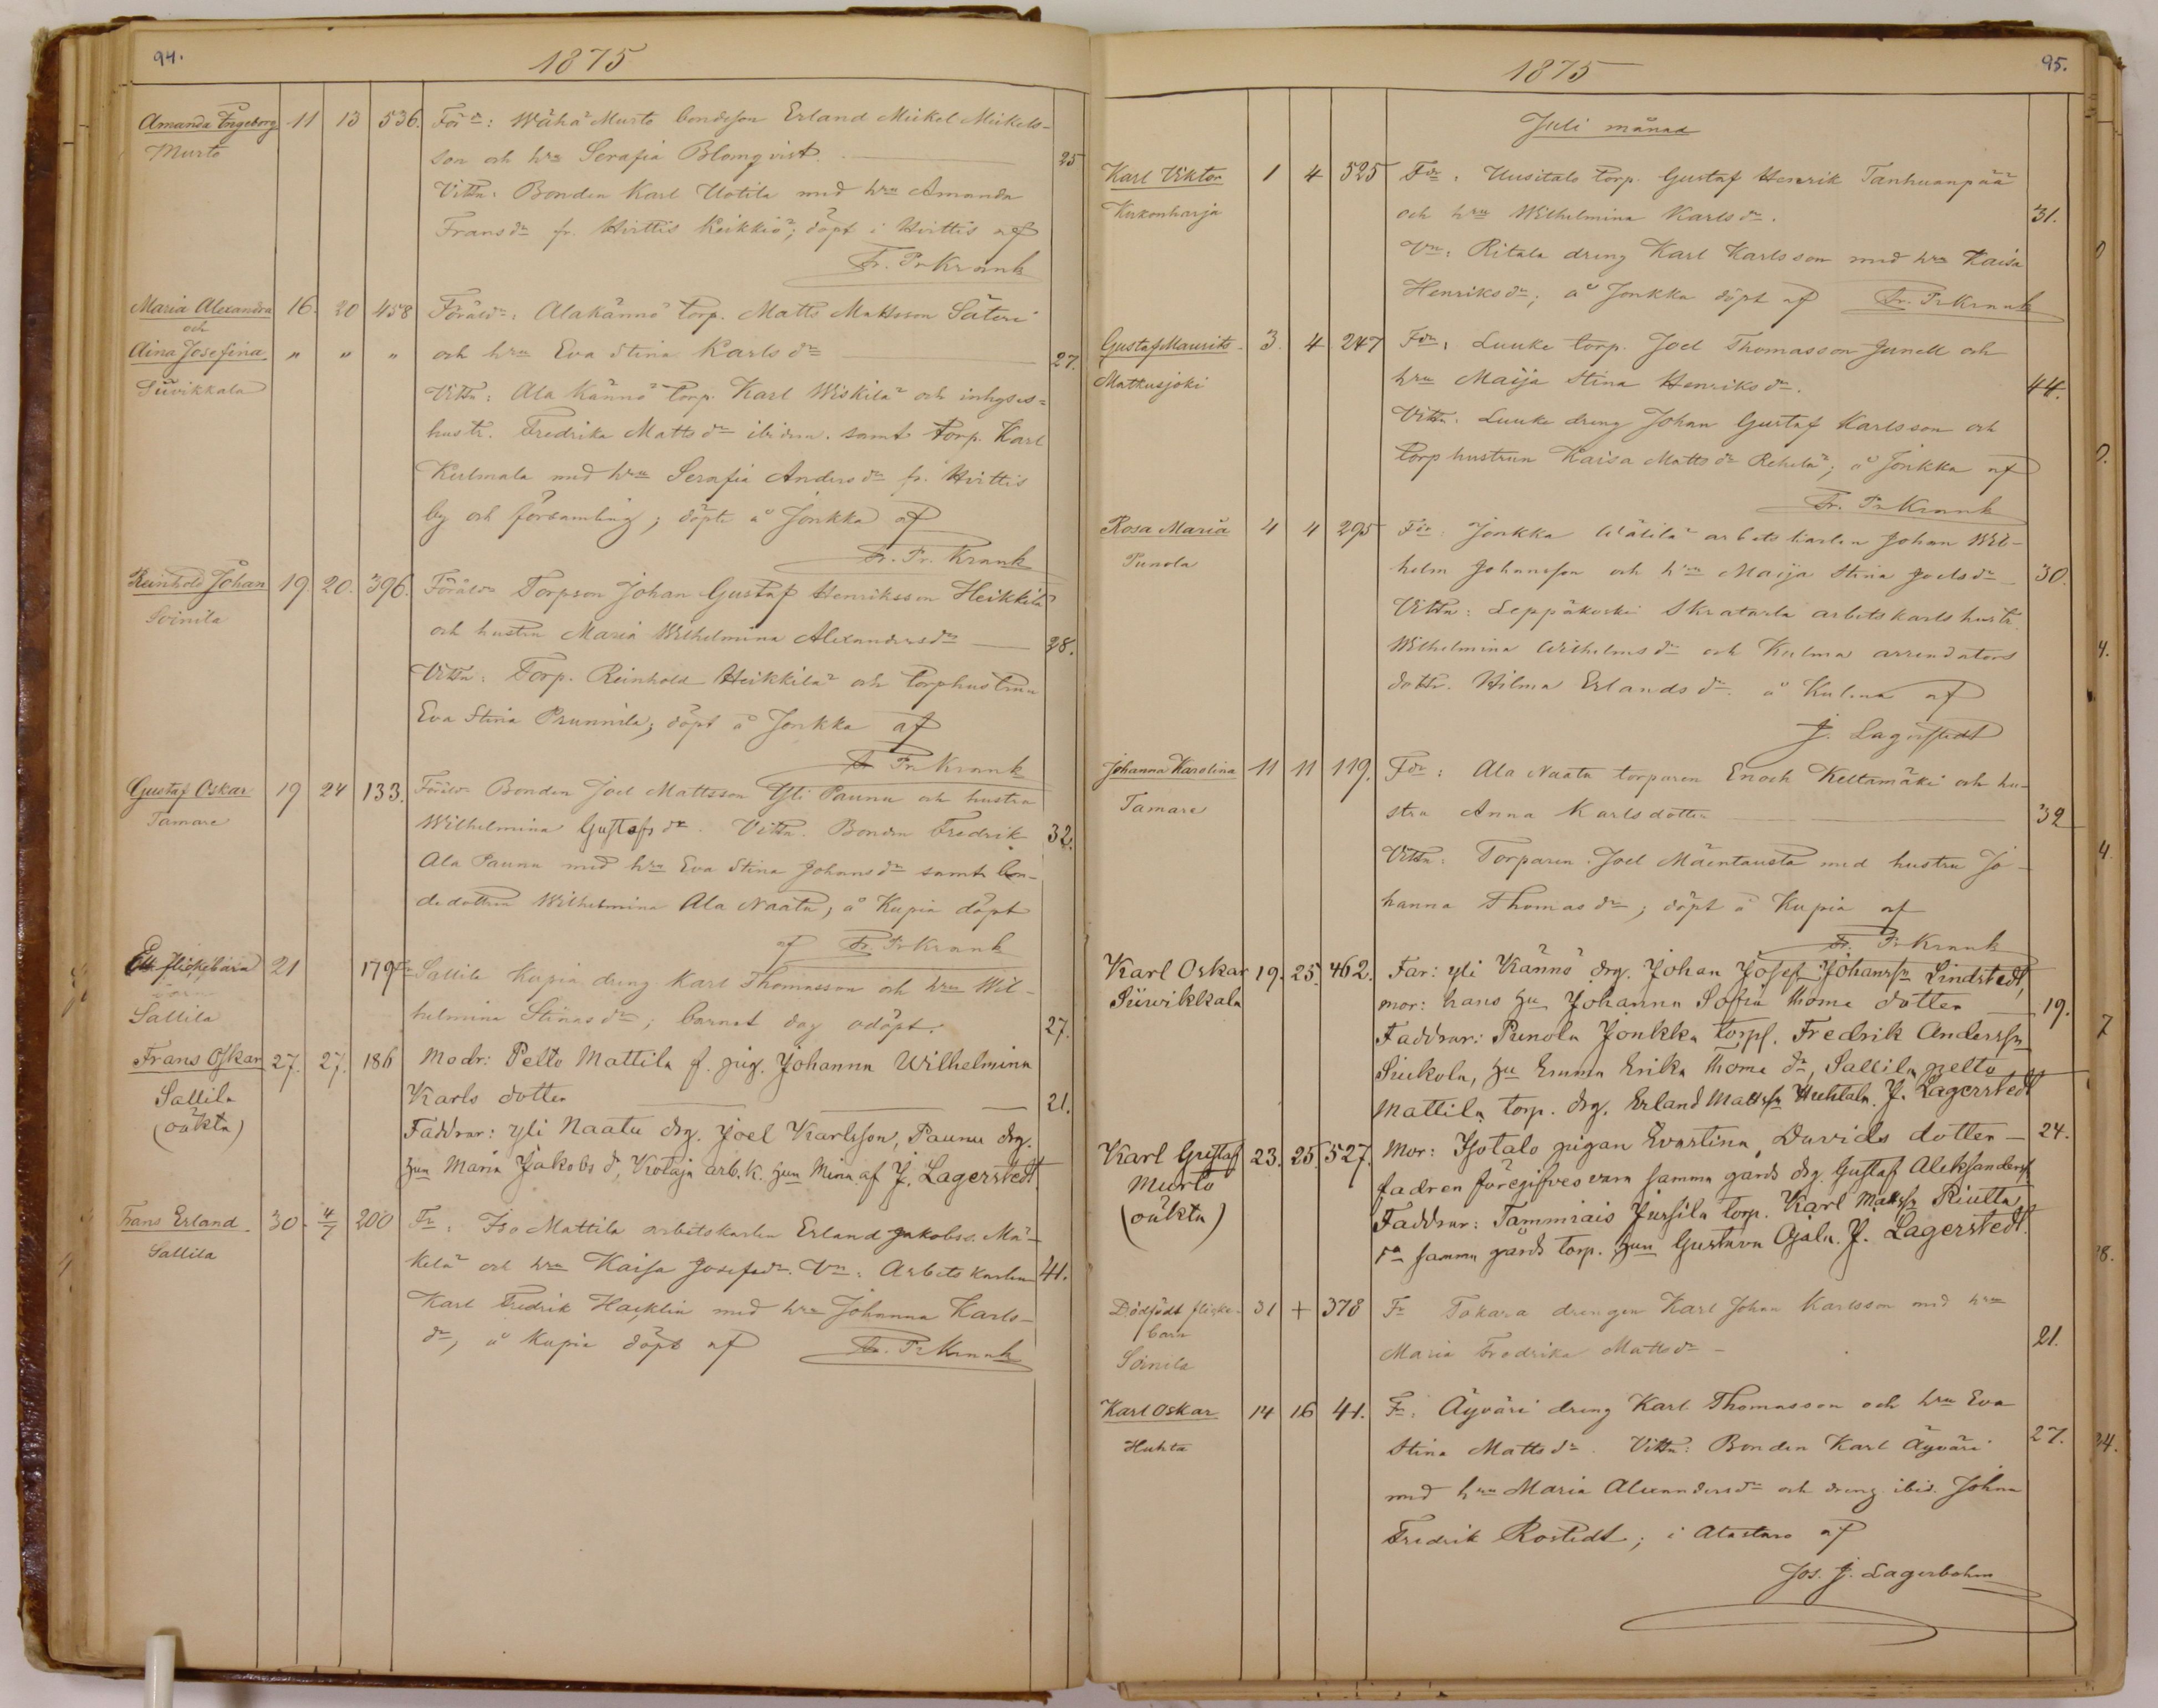 94.
1875
Amanda Ingeborg 11 13 536. För dr: Wähä Murto bondeson Erland Mickel Mickels-
Murto son och hru Serafia Blomqvist. 25
Vittn: Bonden Karl Uotila med hru Amanda
Frans dr fr. Hvittis Keikkiö; döpt i Hvittis af
Fr. Pr Krank
Maria Alexandra 16. 20 458 Föräld: Alakännö torp. Matts Mattsson Säteri
och
Aina Josefina " " " och hru Eva Stina Karls dr 27.
Siivikkala
Vittn: Ala Kännö torp. Karl Wiskilä och inhyses=
hustr. Fredrika Matts dr ibidem. samt torp. Karl
Kulmala med hru Serafia Anders dr fr. Hvittis
by och församling; döpte å Jonkka af
Fr. Pr. Krank
Reinhold Johan 19. 20. 396. Föräldr Torpson Johan Gustaf Henriksson Heikkilä
Soinila och hustru Maria Wilhelmina Alexandersdr 28.
Vittn: Torp. Reinhold Heikkilä och torphustrun
Eva Stina Prunnila; döpt å Jonkka af
Fr Pr Krank
Gustaf Oskar 19 24 133. Föräldr Bonden Joel Mattsson Yli Paunu och hustru
Tamare Wilhelmina Gustafs dr. Vittn. Bonden Fredrik 32.
Ala Paunu med hru Eva Stina Johans dr samt bon-
dedottren Wilhelmina Ala Naatu; å Kupia döpt
af Fr. Pr Krank
Ett flickebarn 21 179 Fr Sallila Kupia dreng Karl Thomasson och hru Wil-
Sallila helmina Stinas dr; barnet dog odöpt. 27.
Frans Oskar 27. 27. 186 Modr: Pelto Mattila f. pig. Johanna Wilhelmina
Sallila Karls dotter 21.
(oäkta) Faddrar: Yli Naatu drg. Joel Karlsson, Paunu drg.
hun Maria Jakobs d, Kotaja arb. k. hun Mina. af J. Lagerstedt.
Frans Erland 30. 4/7 200 Fr: Iso Mattila arbetskarlen Erland Jakobss. Mä-
Sallila kelä och hru Kaisa Josefsdr. Vn: Arbetskarlen 41.
Karl Fredrik Hacklin med hru Johanna Karls-
dr, å Kupia döpt af Fr. Pr Krank
1875
95.
Juli månad
Karl Viktor 1 4 525 Fdr: Uusitalo torp. Gustaf Henrik Tanhuanpää
Kirkonharja och hru Wilhelmina Karls dr. 31.
Vn: Ritala dreng Karl Karlsson med hru Kaisa
Henriks dr; å Jonkka döpt af Fr. Pr Krank
Gustaf Maurits 3. 4 247 Fdr: Luuke torp. Joel Thomasson Junell och
Matkusjoki hru Maija Stina Henriks dr. 44.
Vittn. Luuke dreng Johan Gustaf Karlsson och
torphustrun Kaisa Matts dr Rehelä; å Jonkka af
Fr. Pr Krank
Rosa Maria 4 4 295 Fdr: Jonkka Wälilä arbetskarlen Johan Wil-
Punola helm Johansson och hru Maija Stina Joelsdr 30.
Vittn: Leppäkoski Skratarla arbetskarls hustr.
Wilhelmina Wilhelms dr och Kulma arrendators
dottr. Hilma Erlands dr. å Kulma af
J. Lagerstedt
Johanna Karolina 11 11 119. Fdr: Ala Naatu torparen Enoch Keltamäki och hu-
Tamare stru Anna Karlsdotter 32
Vittn: Torparen Joel Mäentausta med hustru Jo-
hanna Thomas dr; döpt å Kupia af
Fr. Pr Krank
Karl Oskar 19. 25. 462. Far: Yli Kännö drg. Johan Josef Johanssn Lindstedt,
Siivikkala mor: hans hu Johanna Sofia Thome dotter 19.
Faddrar: Punola Jonkka torpf. Fredrik Anderssn
Siukola, hu Emma Erika Thome dr, Sallila pelto
Mattila torp. drg. Erland Mattssn Huhtala. J. Lagerstedt
Karl Gustaf 23. 25. 527. Mor: Isotalo pigan Evastina Davids dotter 24.
Murto fadren föregifves vara samma gårds drg. Gustaf Aleksandersf.
(oäkta) Faddrar: Tammiais Jussila torp. Karl Mattssn Riutta,
sa samma gårds torp. hun Gustava Ojala. J. Lagerstedt.
Dödfödt flicke- 31 + 378 Fr Tokara drengen Karl Johan Karlsson med hru
barn
Soinila Maria Fredrika Mattsdr 21.
Karl Oskar 14 16 41. Fr: Äyväri dreng Karl Thomasson och hru Eva
Huhta Stina Matts dr. Vittn: Bonden Karl Äyväri 27.
med hru Maria Alexandersdr och dreng ibid. Johan
Fredrik Rostedt; i Alastaro af
Jos. J. Lagerbohm